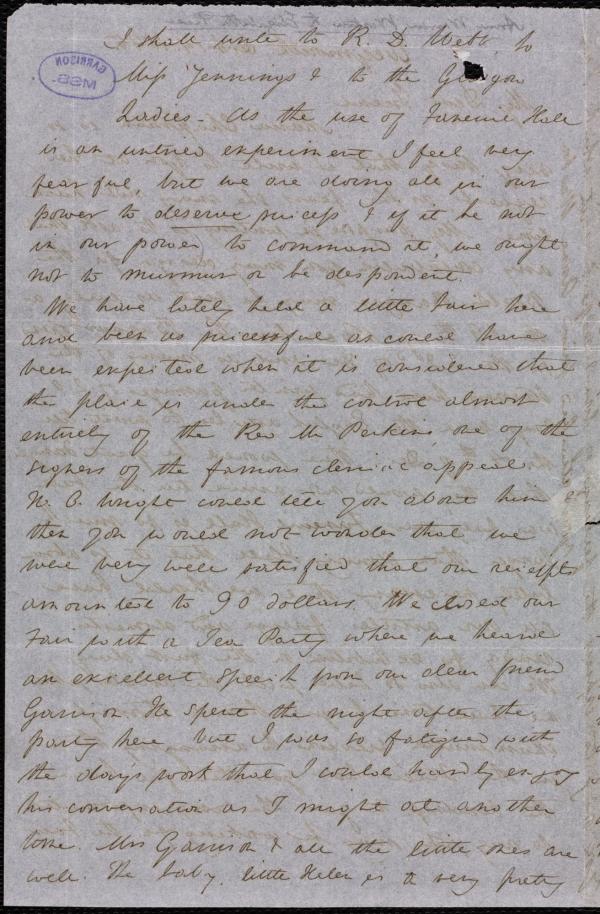 I shall write to R. D. Webb, to
GARRISON
MSS.
Miss Jennings & to the Glasgow
Ladies - As the use of Faneuil Hall
is an untried experiment I feel very
fearful, but we are doing all in our
power to deserve success & if it be not
in our power to command it, we ought
not to murmur or be despondent.
We have lately held a little Fair here
and been as successful as could have
been expected when it is considered that
the place is under the control almost
entirely of the Rev Mr Perkins, one of the
signers of the famous clerical appeal.
H. C. Wright could tell you about him &
then you would not wonder that we
were very well satisfied that our receipts
amounted to 90 dollars. We closed our
Fair with a Tea Party where we heard
an excellent speech from our dear friend
Garrison. He spent the night after the
party here, but I was so fatigued with
the days work that I could hardly enjoy
his conversation as I might at another
time. Mrs Garrison & all the little ones are
well. The baby, little Helen is a very pretty